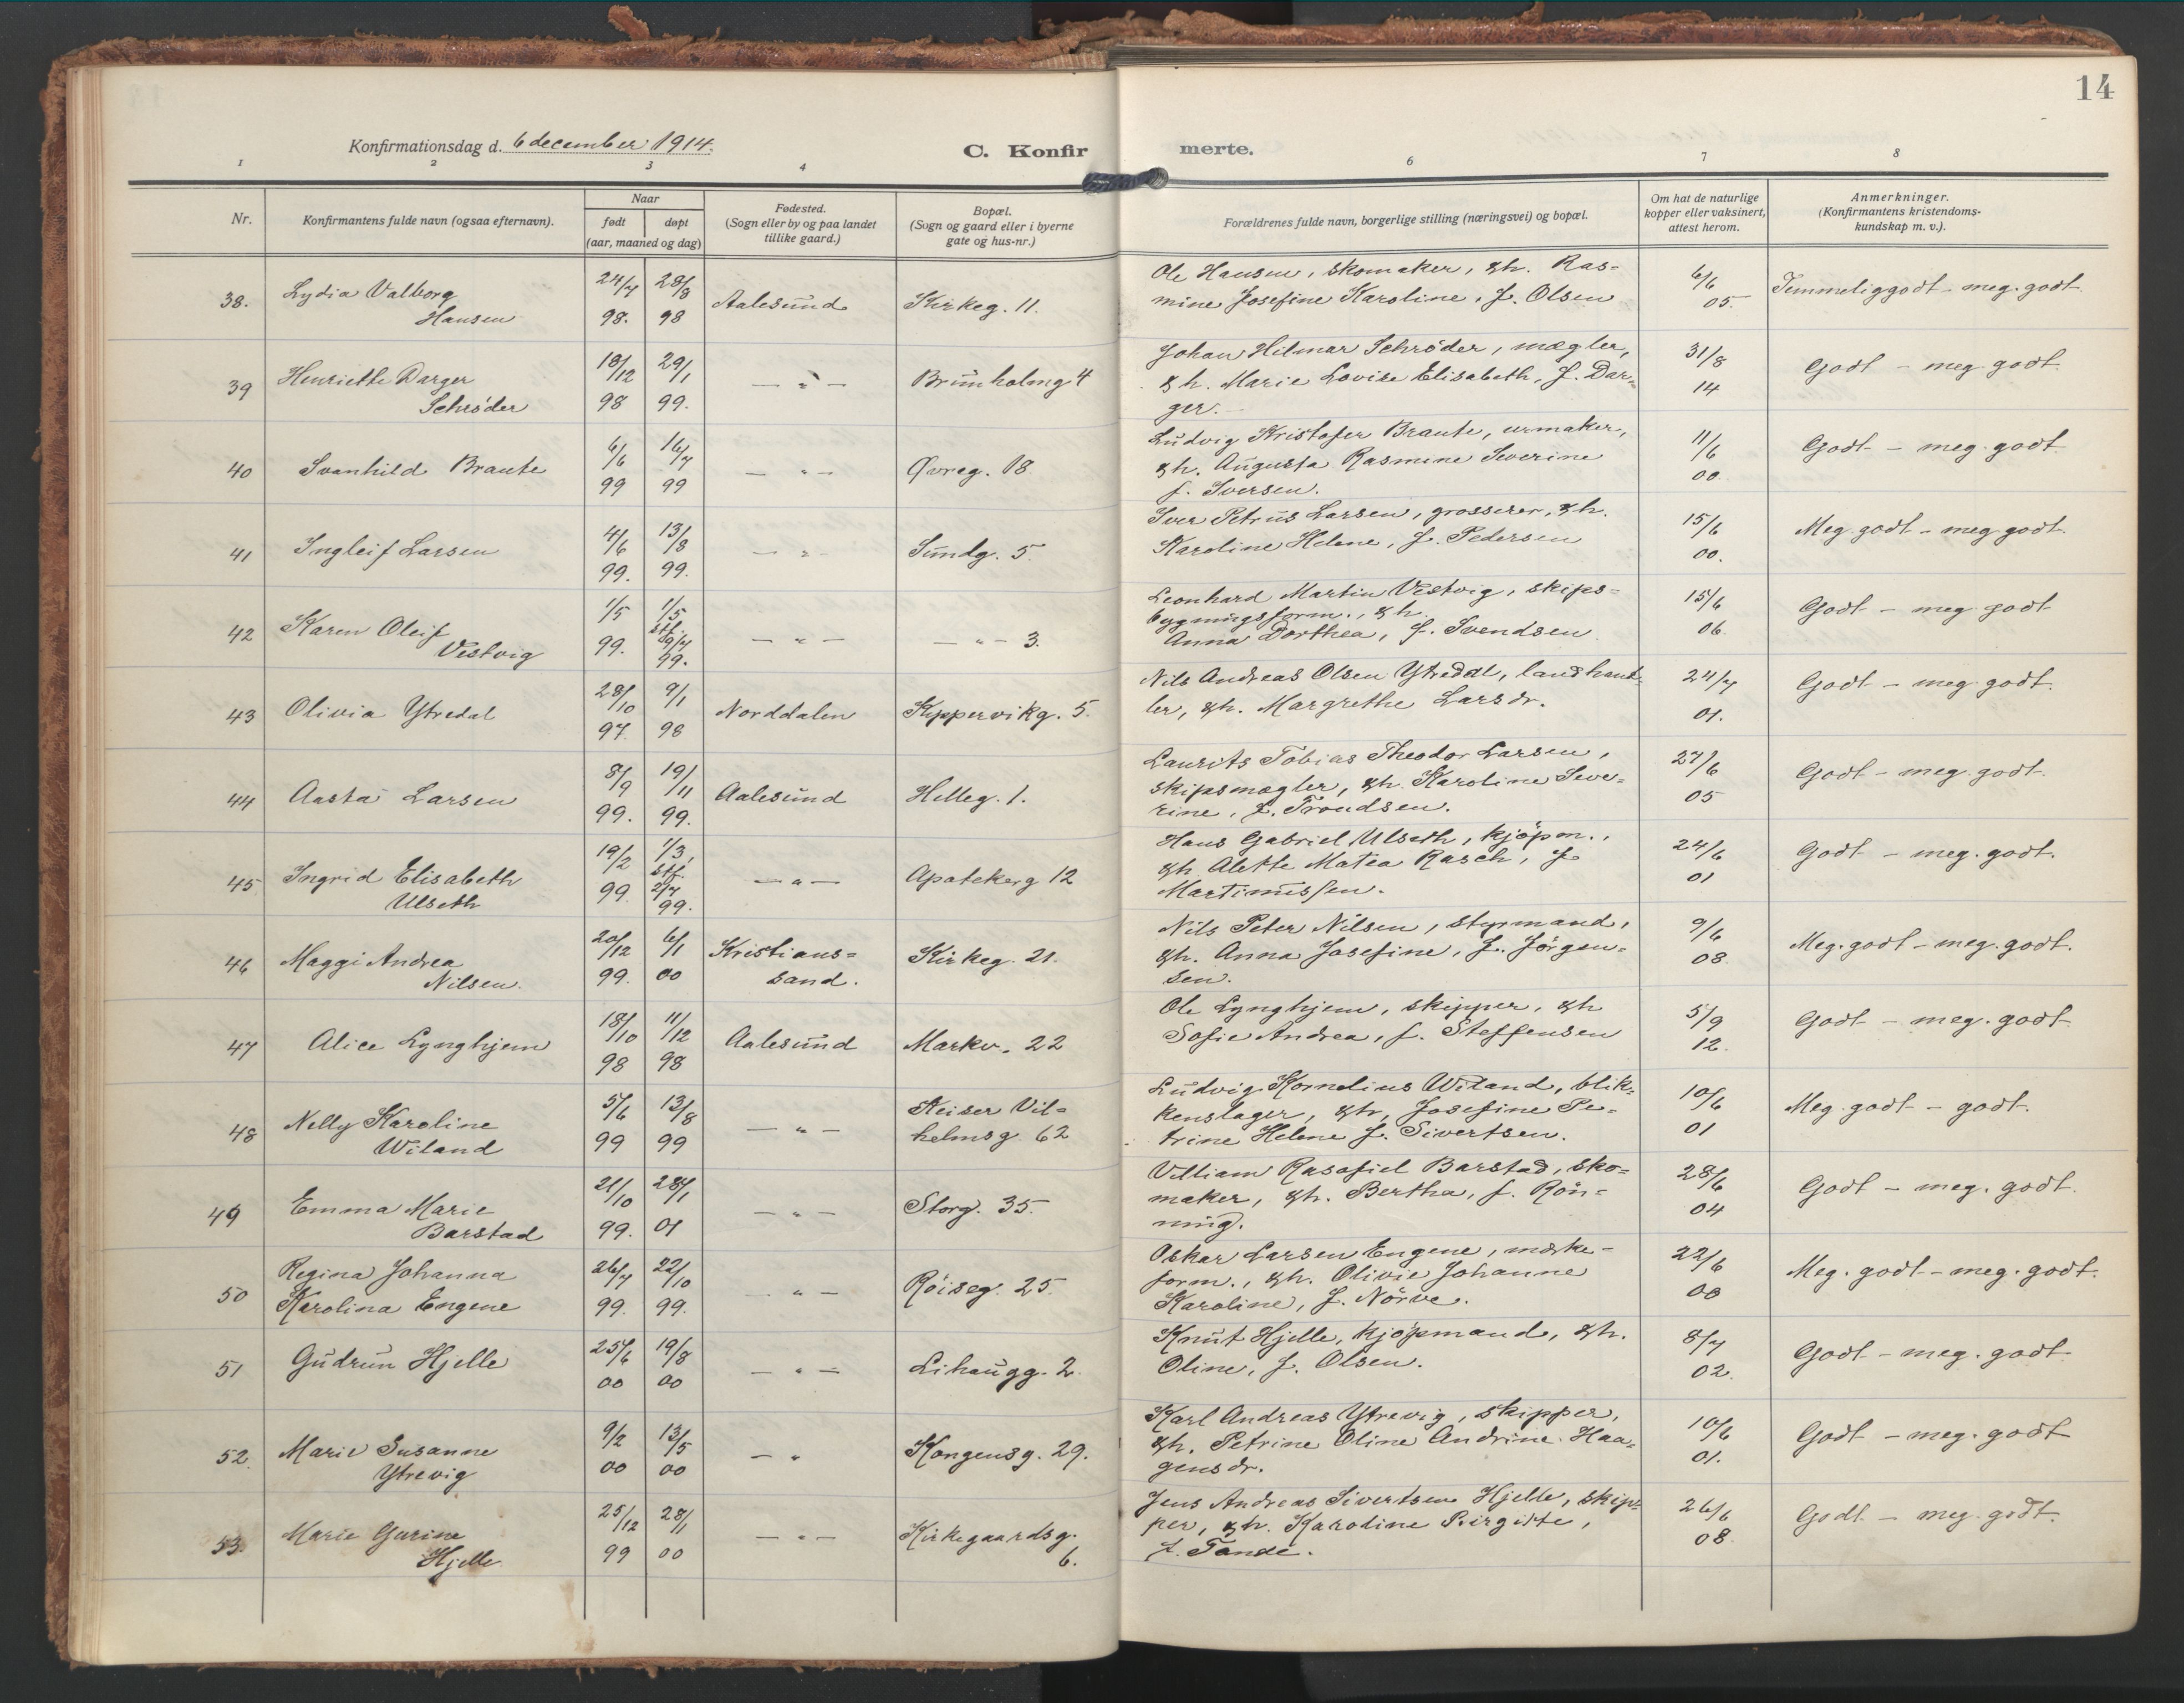 14
Konfirmationsdag d. 6 december 1914.
C. Konfirmerte.
1 2 3 4 6 7 8
Nr.
Konfirmantens fulde navn (ogsaa efternavn).
Naar
født døpt
(aar, maaned og dag)
Fødested.
(Sogn eller by og paa landet
tillike gaard.)
Bopæl.
(Sogn og gaard eller i byerne
gate og hus-nr.)
Forældrenes fulde navn, borgerlige stilling (næringsvei) og bopæl.
Om hat de naturlige
kopper eller vaksinert,
attest herom.
Anmerkninger.
(Konfirmantens kristendoms-
kundskap m. v.).
38. Lydia Valborg
Hansen
24/7 98. 28/8 98
Aalesund
Kirkeg. 11.
Ole Hansen, skomaker, &h. Ras=
mine Josefine Karoline, f. Olsen
6/6 05.
Temmelig godt - meg. godt.
39 Henriette Darger
Schröder
18/12 98 29/1 99.
— " —
Brunholmg 4
Johan Hilmar Schröder, mægler,
&h. Marie Lovise Elisabeth, f. Dar=
ger.
31/8 14
Godt - meg godt.
40 Svanhild Braute
6/6 99 16/7 99
— " —
Øvreg. 18
Ludvig Kristofer Braute, urmaker,
&h. Augusta Rasmine Severine
f. Iversen.
11/6 00.
Godt - meg. godt.
41 Ingleif Larsen
4/6 99. 13/8 99.
— " —
Sundg. 5.
Iver Petrus Larsen, grosserer, &h.
Karoline Helene, f. Pedersen
15/6 00.
Meg. godt - meg godt.
42 Karen Oleif
Vestvig
1/5 99. 1/5 stf. 9/7 99.
— " —
— " — 3.
Leonhard Martin Vestvig, skips=
bygningsform., &h.
Anna Dorthea, f. Svendsen.
15/6 06.
Godt - meg godt
43 Olivia Ytredal
28/10 97. 9/1 98
Norddalen
Kippervikg. 5.
Nils Andreas Olsen Ytredal, landhand=
ler, &h. Margrethe Larsdr.
24/7 01.
Godt - meg godt.
44 Aasta Larsen
8/9 99. 19/11 99.
Aalesund
Helleg. 1.
Laurits Tobias Theodor Larsen,
skipsmægler, &h. Karoline Seve=
rine, f. Trondsen.
27/6 05
Godt - meg. godt.
45 Ingrid Elisabeth
Ulseth
19/2 99. 1/3, stf. 2/7 99.
— " —
Apotekerg 12
Hans Gabriel Ulseth, kjöpm.,
&h Alette Matea Rasch, f.
Martinussen.
24/6 01
Godt - meg. godt.
46 Maggi Andrea
Nilsen.
20/12 99. 6/1 00
Kristians=
sand.
Kirkeg. 21.
Nils Peter Nilsen, styrmand,
&h. Anna Josefine, f. Jörgen=
sen.
9/6 08.
Meg. godt - meg. godt.
47 Alice Lynghjem
18/10 98 11/12 98
Aalesund
Markv. 22
Ole Lynghjem, skipper, &h
Sofie Andrea, f. Steffensen
5/9 12.
Godt - meg. godt
48 Nelly Karoline
Wiland
5/6 99 13/8 99
— " —
Keiser Vil=
helmsg. 62
Ludvig Kornelius Wiland, blik=
kenslager, &h, Josefine Pe=
trine Helene f. Sivertsen.
10/6 01
Meg. godt - godt.
49 Emma Marie
Barstad
21/10 99. 28/1 01
— " —
Storg. 35.
Villiam Rasafiel Barstad, sko=
maker, &h. Bertha, f. Rön=
ning.
28/6 04
Godt - meg. godt.
50 Regina Johanna
Karolina Engene
26/7 99. 22/10 99.
— " —
Röiseg. 25.
Oskar Larsen Engene, mærke-
form., &h. Olivie Johanne
Karoline, f. Nörve.
22/6 00
Meg. godt - meg. godt.
51 Gudrun Hjelle
25/6 00 19/8 00
— " —
Lihaugg. 2.
Knut Hjelle, kjöpmand, &h.
Oline, f. Olsen.
8/7 02.
Godt - meg. godt
52. Marie Susanne
Ytrevig
9/2 00 13/5 00
— "
Kongensg. 29.
Karl Andreas Ytrevig, skipper,
&h. Petrine Oline Andrine Haa=
gensdr.
10/6 01.
Godt - meg. godt
53. Marie Gurine
Hjelle
25/12 99 28/1 00
— " —
Kirkegaardsg.
6.
Jens Andreas Sivertsen Hjelle, skip=
per, &h. Karoline Birgitte,
f. Tande.
26/6 08
Godt - meg. godt.